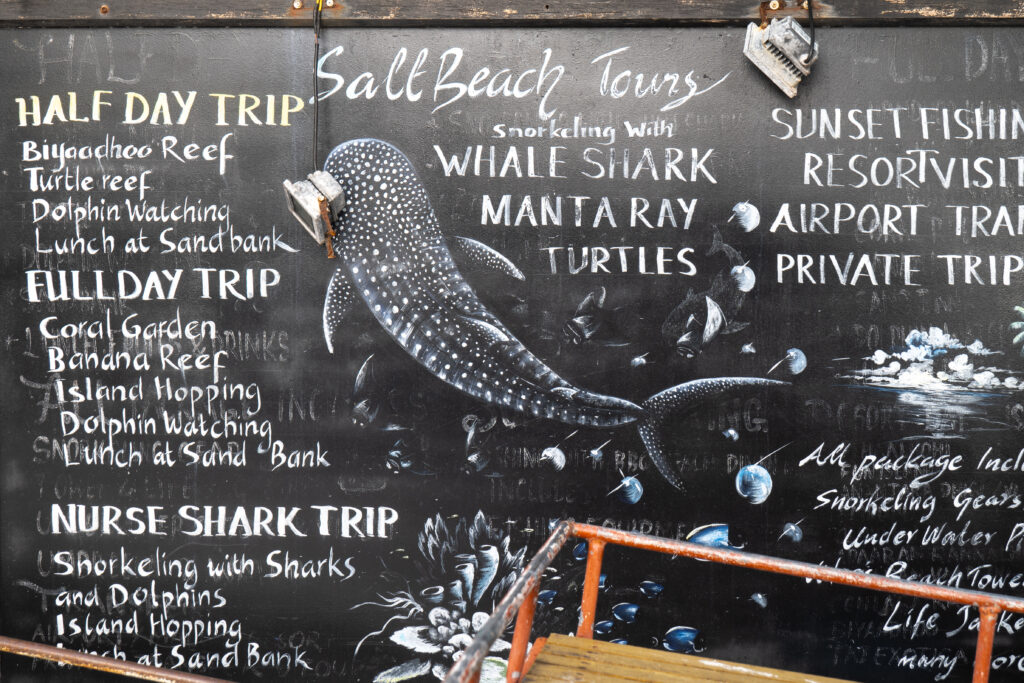 Salt Beach Tours
HALF DAY TRIP
Biyaadhoo Reef
Turtle reef
Dolphin Watching
Lunch at Sandbank
FULLDAY TRIP
Coral Garden
Banana Reef
Island Hopping
Dolphin Watching
Lunch at Sand Bank
NURSE SHARK TRIP
Snorkeling with Sharks
and Dolphins
Island Hopping
Lunch at Sand Bank
Snorkeling With
WHALE SHARK
MANTA RAY
TURTLES
SUNSET FISHIN
RESORT VISIT
AIRPORT TRA
PRIVATE TRIP
All package Incl
Snorkeling Gears
Under Water P
Beach Towe
Life Jacke
many more